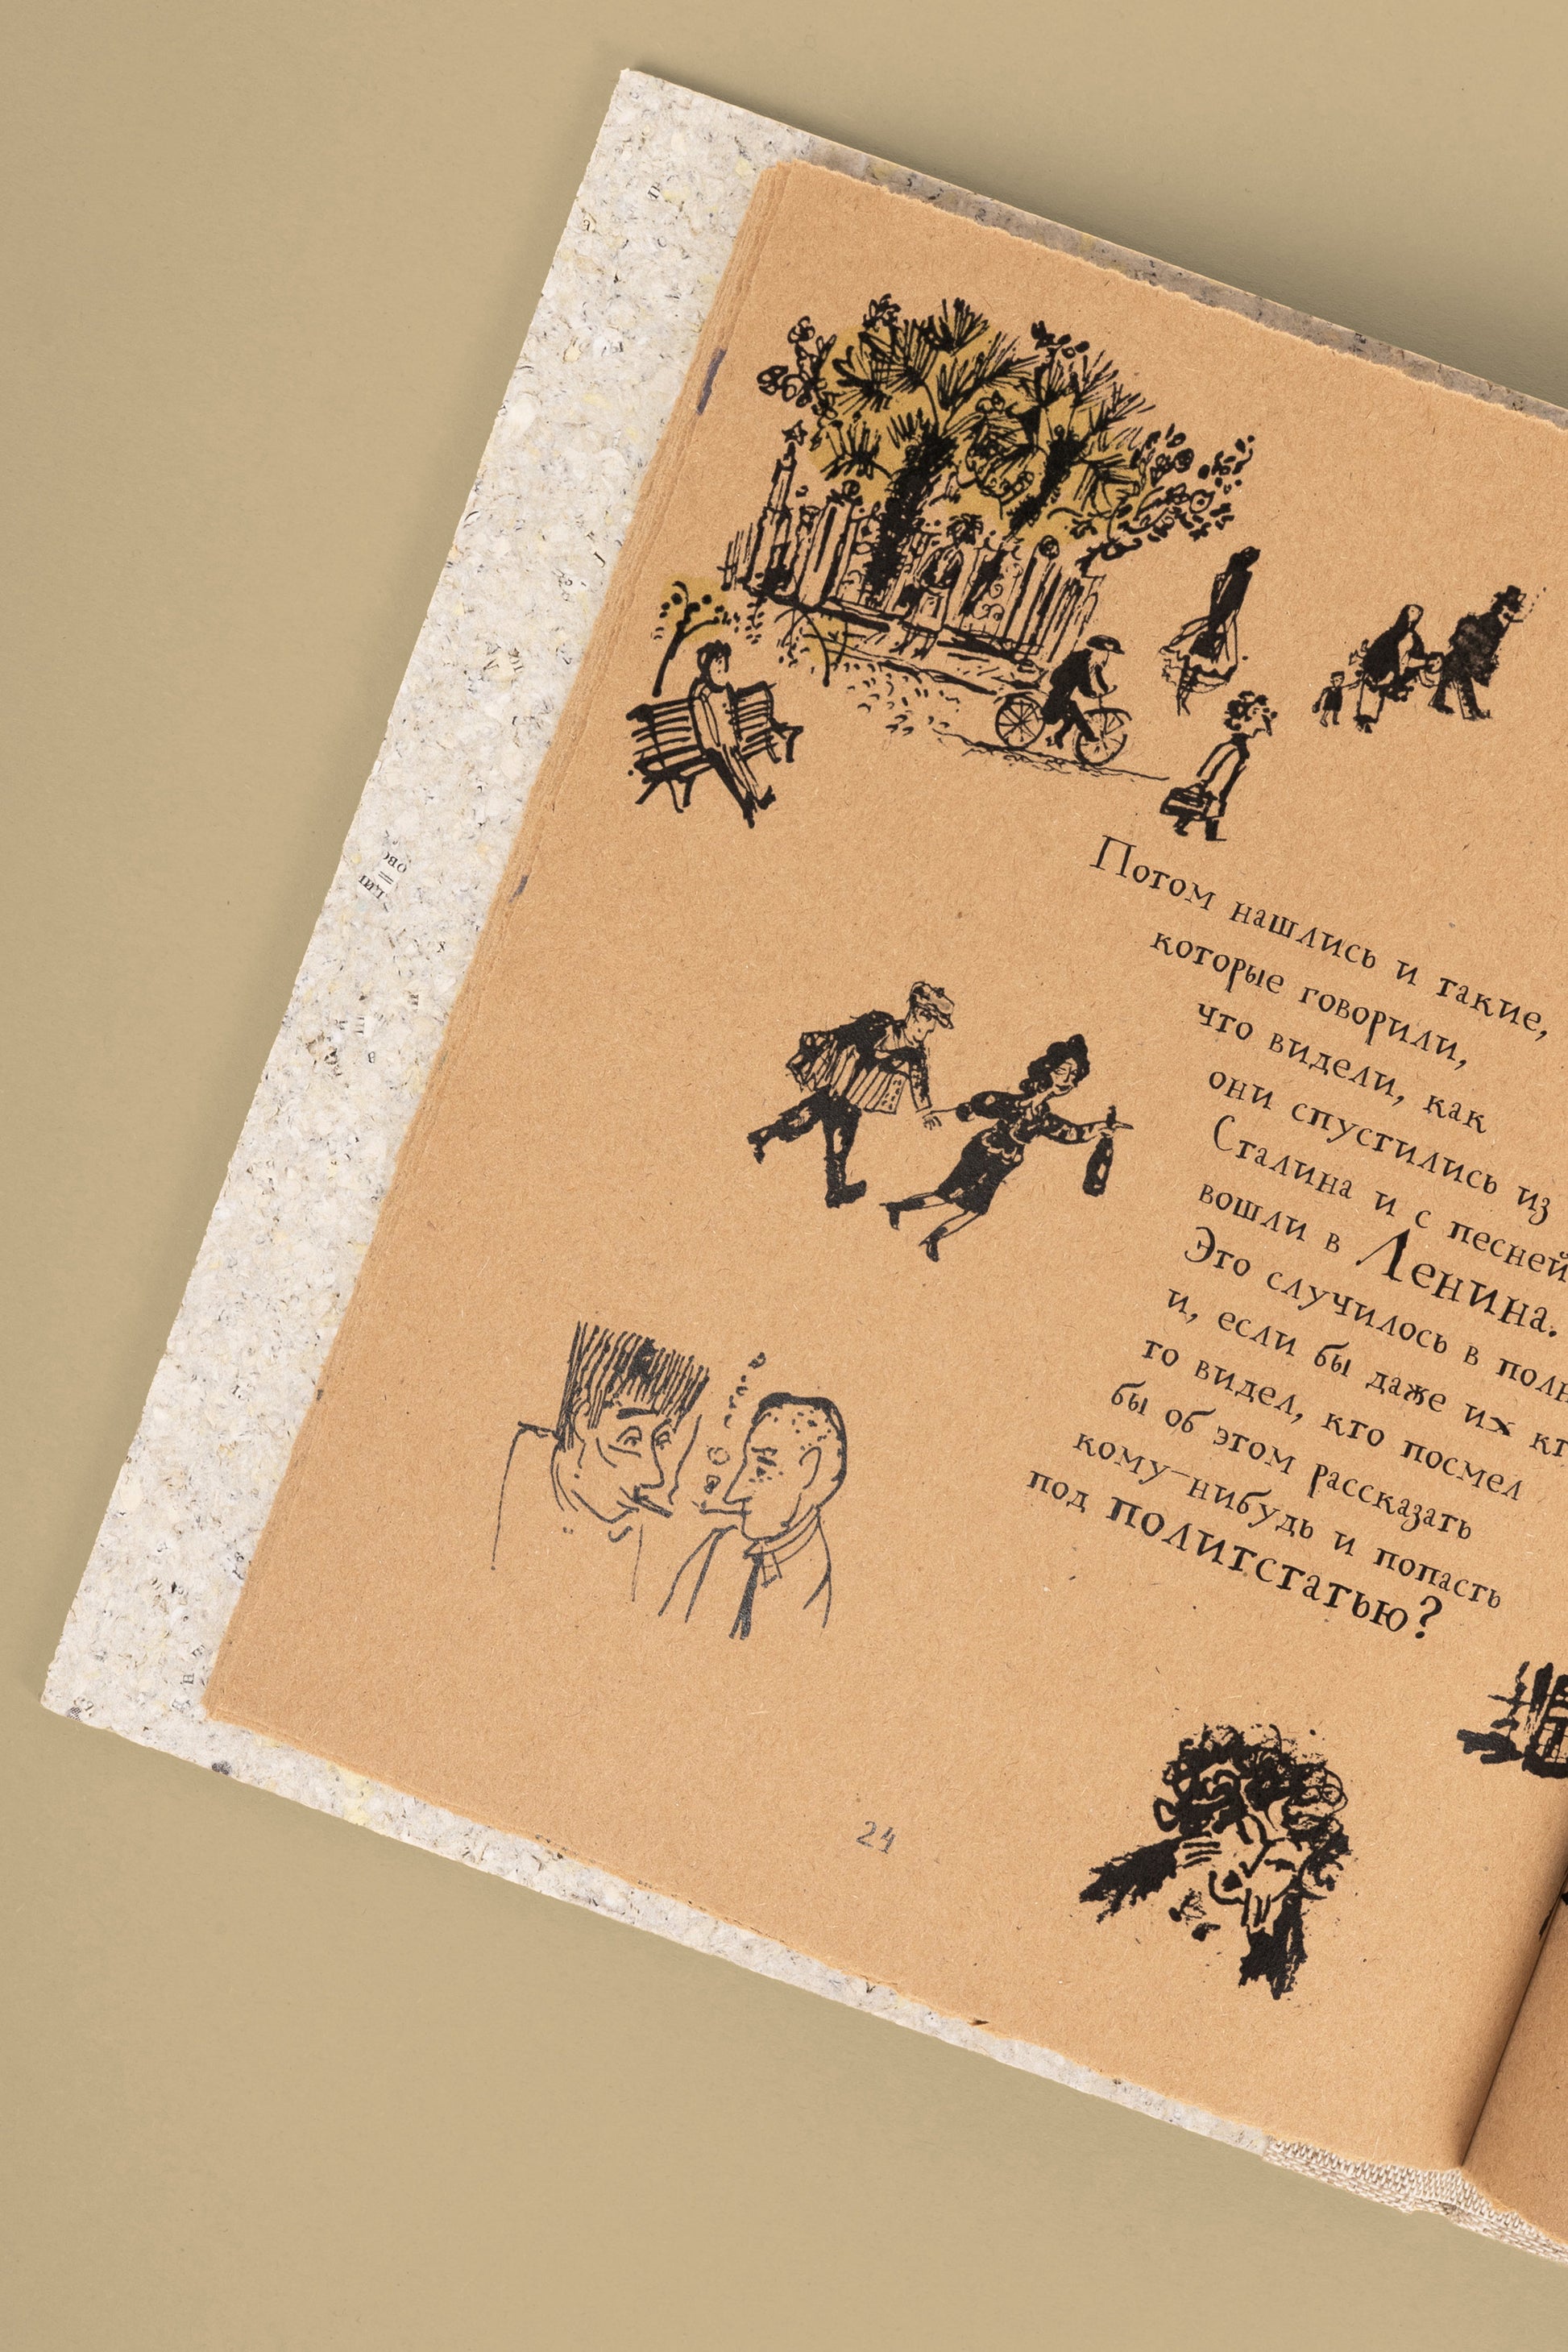 Потом нашлись и такие,
которые говорили,
что видели, как
они спустились из
Сталина и с песней
вошли в Ленина.
Это случилось в
и, если бы даже их
то видел, кто посмел
бы об этом рассказать
кому-нибудь и попасть
под политстатью?
24